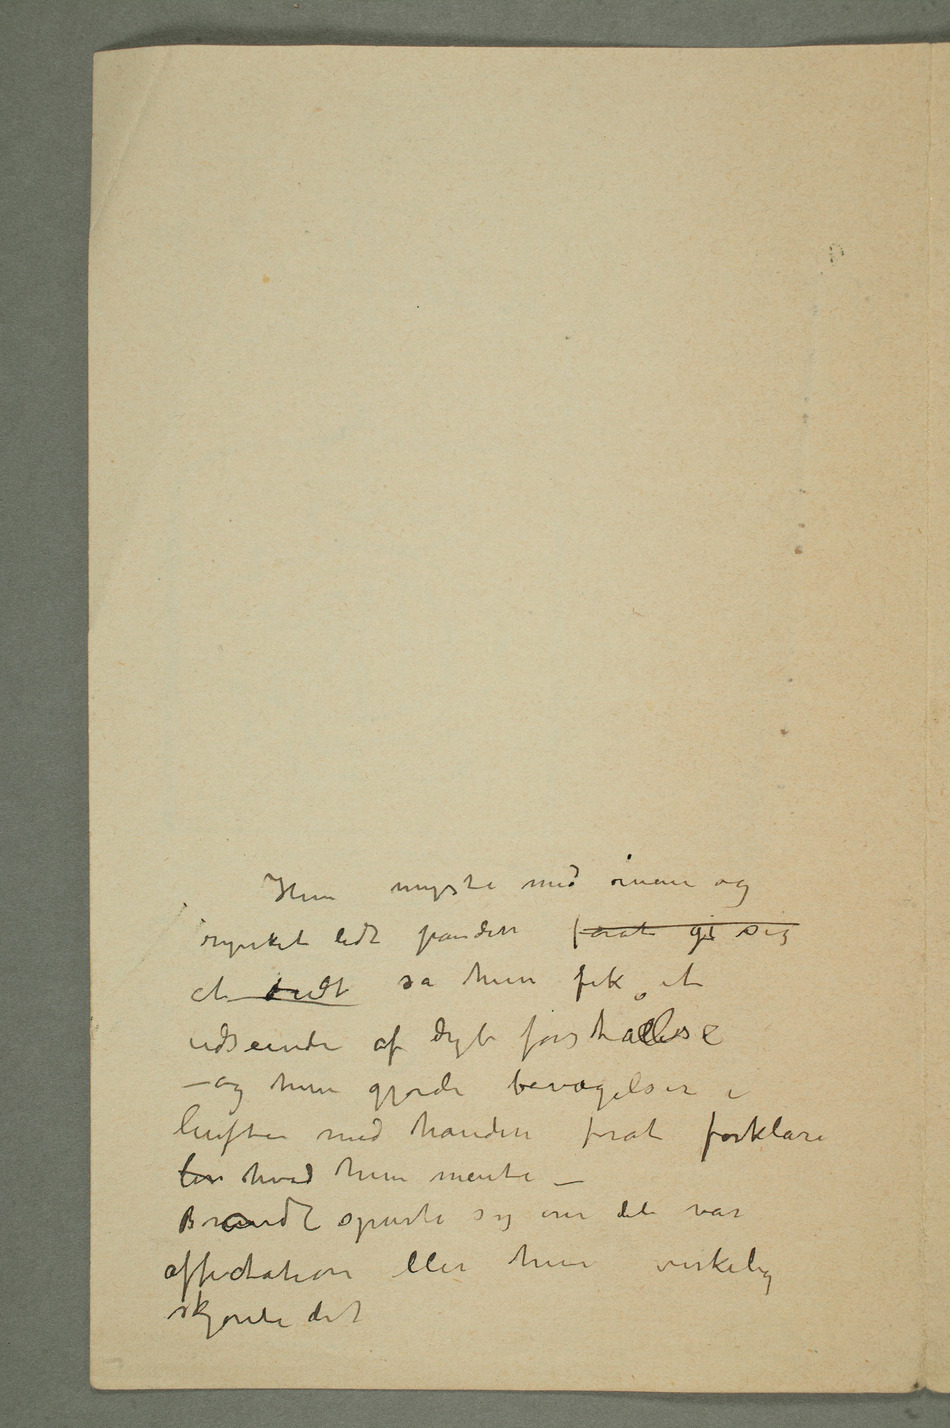 Hun myste med øinene og
rynket lidt panden forat gi sig
et lidt så hun fik et
udseende af dyb forståelse
– og hun gjorde bevægelser i
luften med hånden forat forklare
hvad hun mente –
Brandt spurte sig om det var
affectation eller hun virkelig
skjønte det